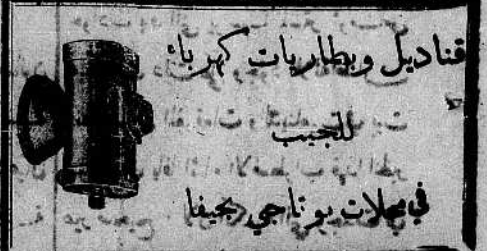 قناديل وبطاريات كهرباء
للجيب
في محلات بوتاجي بحيفا